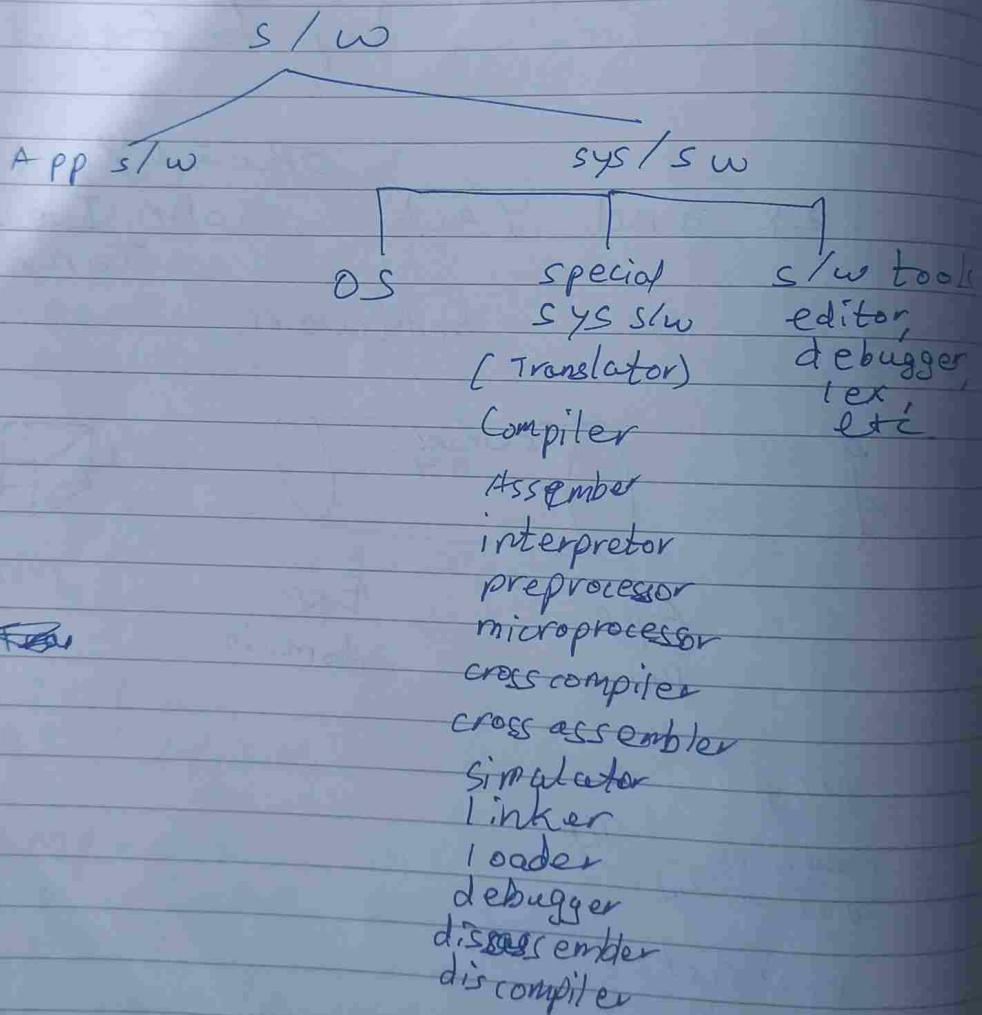 s/w
App s/w
sys/sw
OS
special
sys s/w
(Translator)
Compiler
Assember
interpretor
preprocessor
microprocessor
cross compiler
cross assembler
simulator
linker
loader
debugger
disassembler
discompiler
s/w tools
editor,
debugger,
lex,
etc